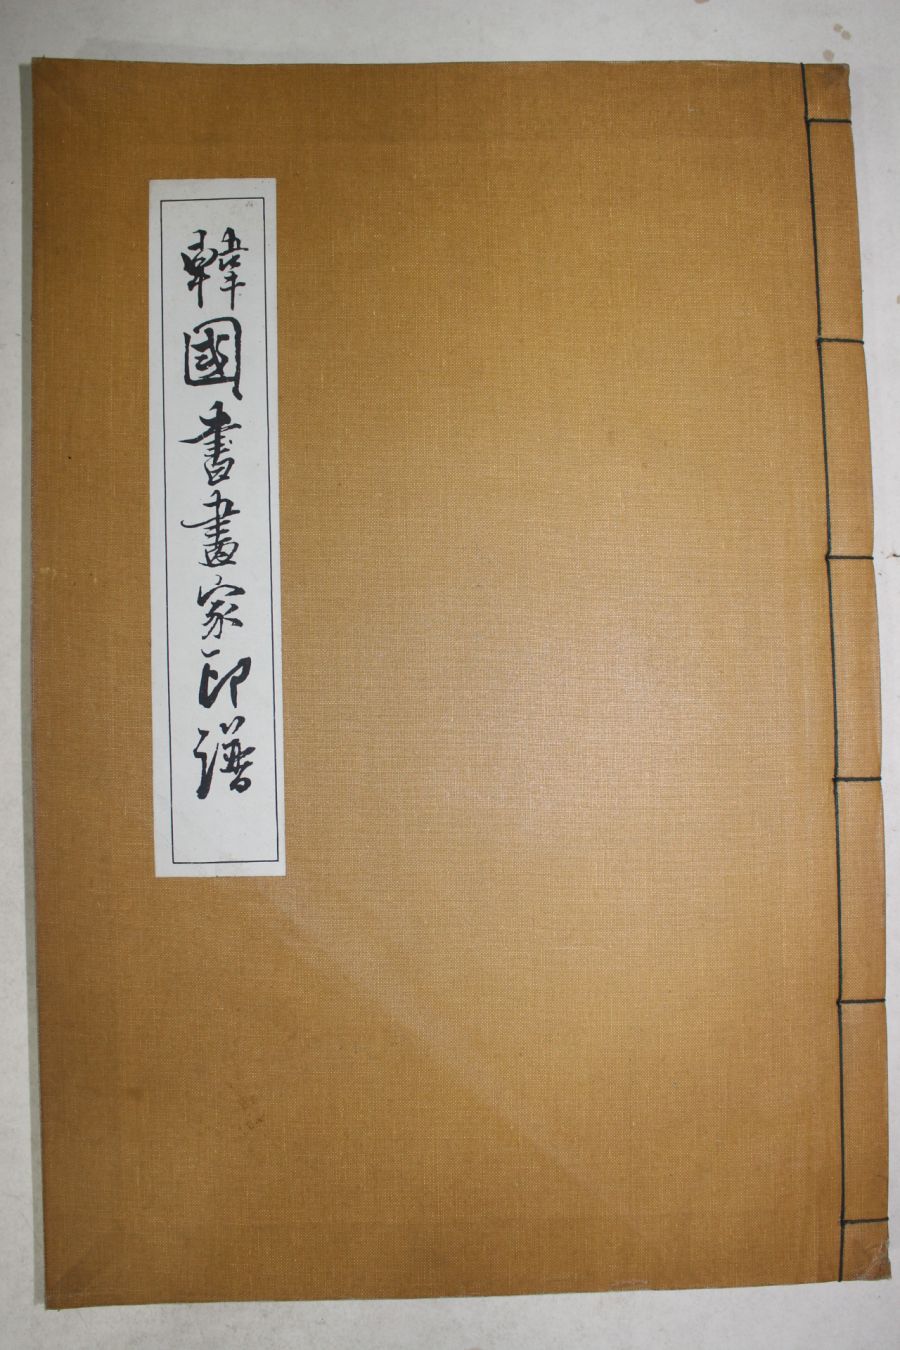 韓國書畫家印譜